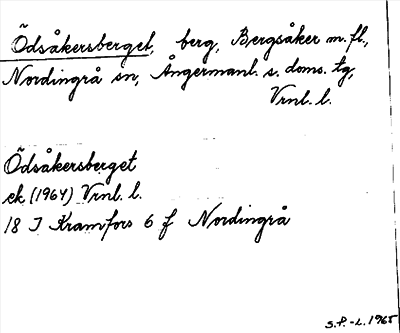 Ödsåkersberget, berg, Bergsåker m.fl.,
Nordingrå sn, Ångermanl. s. doms. tg,
Vrnl. l.
Ödsåkersberget
ek (1964) Vrnl. l.
18 J Kramfors 6 f Nordingrå
S.P.-L. 1965